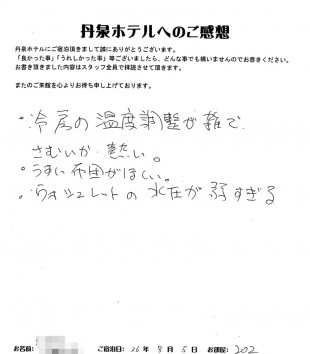 丹泉ホテルへのご感想
丹泉ホテルにご宿泊頂きまして誠にありがとうございます。
「良かった事」「うれしかった事」等ございましたら、どんな事でも構いませんのでお書きください。
お書き頂きました内容はスタッフ全員で拝読させて頂きます。
またのご来館を心よりお待ち申し上げております。
・冷房の温度調整が雑で
さむいか熱い。
・うすい布団がほしい。
・ウォシュレットの水圧が弱すぎる
お名前: ご宿泊日: 26年 8月 5日 お部屋: 202